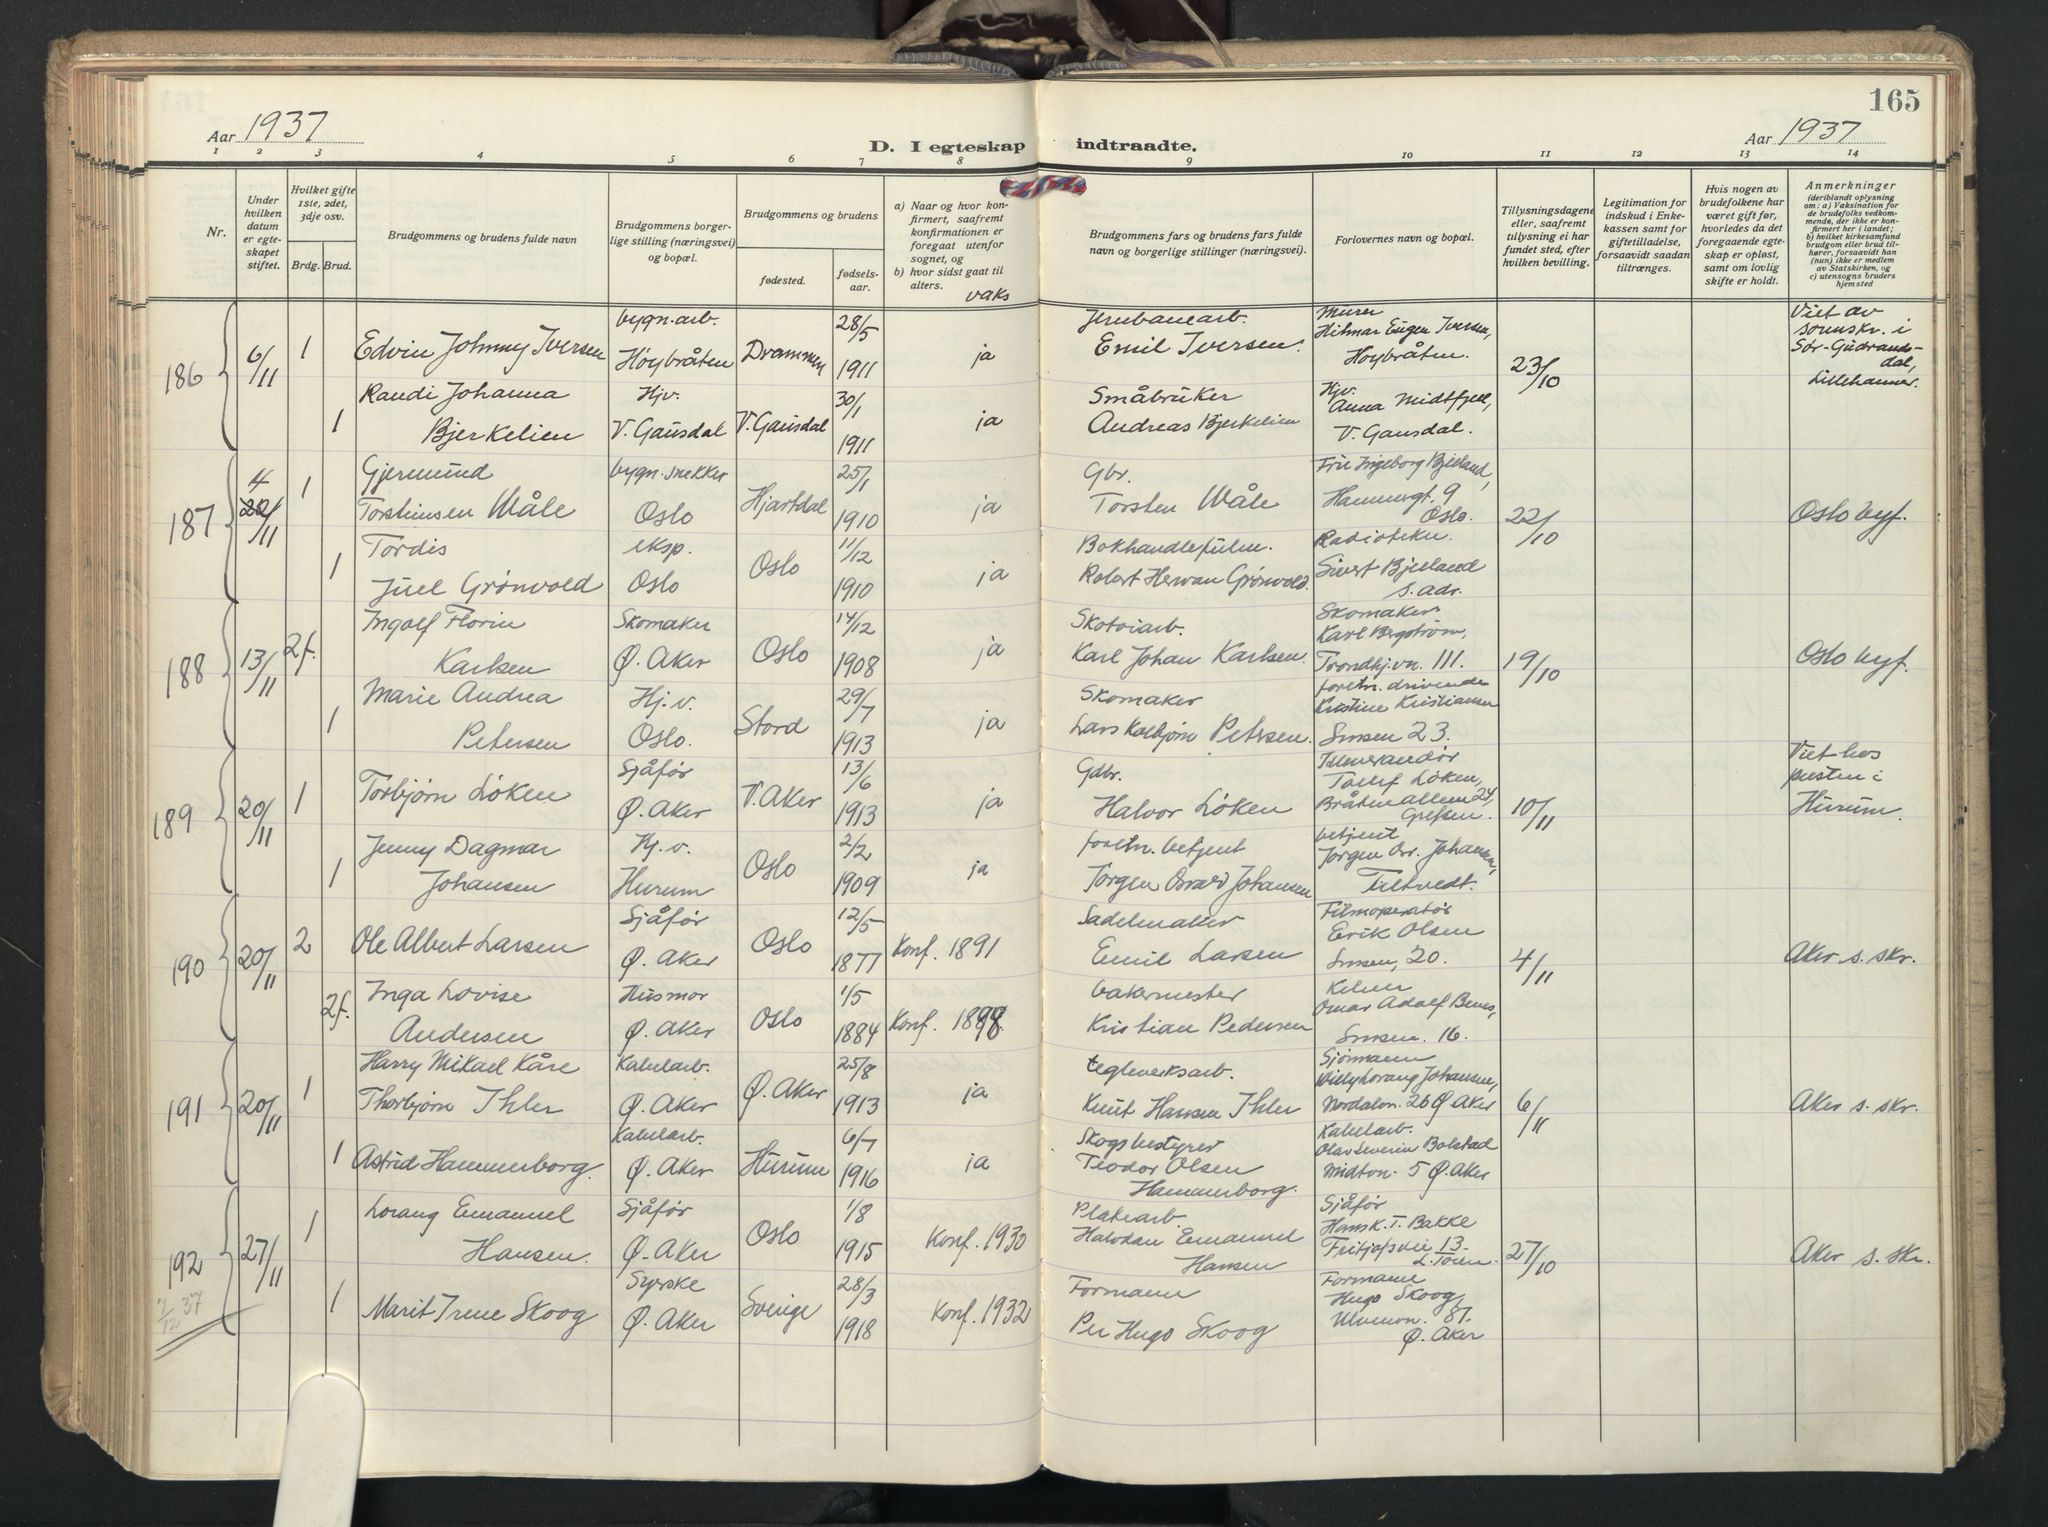 165
Aar 1937
D. I egteskap indtraadte.
Aar 1937
1 2 3 4 5 6 7 8 9 10 11 12 13 14
Nr.
Under hvilken datum er egteskapet stiftet.
Hvilket gifte 1ste, 2det, 3dje osv.
Brdg. Brud.
Brudgommens og brudens fulde navn
Brudgommens borgerlige stilling (næringsvei) og bopæl.
Brudgommens og brudens
fødested.
fødselsaar.
a) Naar og hvor konfirmert, saafremt konfirmationen er foregaat utenfor sognet, og
b) hvor sidst gaat til alters.
vaks
Brudgommens fars og brudens fars fulde navn og borgerlige stillinger (næringsvei).
Forlovernes navn og bopæl.
Tillysningsdagene eller, saafremt tillysning ei har fundet sted, efter hvilken bevilling.
Legitimation for indskud i Enkekassen samt for giftetilladelse, forsaavidt saadan tiltrænges.
Hvis nogen av brudefolkene har været gift før, hvorledes da det foregaaende egteskap er opløst, samt om lovlig skifte er holdt.
Anmerkninger
(deriblandt oplysning om: a) Vaksination for de brudefolks vedkommende, der ikke er konfirmert her i landet;
b) hvilket kirkesamfund brudgom eller brud tilhører, forsaavidt han (hun) ikke er medlem av Statskirken, og
c) utensogns bruders hjemsted
186 6/11 1 Edvin Johnny Iversen bygn.arb. Høybråten Drammen 28/5 1911 ja Jernbanearb. Emil Iversen. Murer Hilmar Eugen Iversen, Høybråten. 23/10 Viet av sorenskr. i Sør-Gudbrandsdal, Lillehammer.
1 Randi Johanna Bjerkelien Hjv. V. Gausdal V. Gausdal 30/1 1911 ja Småbruker Andreas Bjerkelien Hjv. Anna Midtfjell, V. Gausdal.
187 4 20/11 1 Gjermund Torsteinsen Måle bygn. snekker Oslo Hjartdal 25/1 1910 ja Gbr. Torsten Måle Fru Ingeborg Bjelland, Hammergt. 9 Oslo. 22/10 Oslo byf.
1 Tordis Juel Grönvold eksp. Oslo Oslo 11/12 1910 ja Bokhandlefullm. Robert Herman Grönvold. Radiotekn. Sivert Bjelland s. adr.
188 13/11 2f. Ingolf Florin Karlsen Skomaker Ø. Aker Oslo 14/12 1908 ja Skotøiarb. Karl Johan Karlsen. Skomaker Karl Bergström, Trondhj.vn. 111. 19/10 Oslo byf.
1 Marie Andrea Petersen Hj.v. Oslo. Stord 29/7 1913 ja Skomaker Lars Kolbjørn Petersen. foretn. drivende Kristine Kristiansen Sinsen 23.
189 20/11 1 Torbjørn Løken Sjåfør Ø. Aker V. Aker 13/6 1913 ja Gdbr. Halvor Løken Tollef Løken, Bråtenalleen 24, Grefsen. 10/11 Viet hos presten i Hurum.
1 Jenny Dagmar Johansen Hj.v. Hurum Oslo 2/2 1909 ja foretn. betjent Jørgen Osvald Johansen betjent Jørgen Osv. Johansen, Tiltvedt.
190 20/11 2 Ole Albert Larsen Sjåfør Ø. Aker Oslo 12/5 1877 Konf. 1891 Sadelmaker Emil Larsen Filmoperatør Erik Olsen Sinsen, 20. 4/11 Aker s. skr.
2f. Inga Lovise Andersen Husmor Ø. Aker Oslo 1/5 1884 Konf. 1898. bakermester Kristian Pedersen Kelner Omar Adolf Sinsen. 16.
191 20/11 1 Harry Mikael Kåre Thorbjørn Ihler Kabelarb. Ø. Aker Ø. Aker 25/8 1913 ja teglverksarb. Knut Hansen Ihler Sjømann Willy Lorang Johansen, Nordalon. 26 Ø. Aker 6/11 Aker s. skr.
1 Astrid Hammerborg. Kabelarb. Ø. Aker Hurum 6/7 1916 ja Skogsbestyrer Teodor Olsen Hammerborg. Kabelarb. Olav Severin Bolstad Midton. 5 Ø. Aker
192 27/11 1 Lorang Emanuel Hansen. Sjåfør Ø. Aker Oslo 1/8 1915 Konf. 1930 Platearb. Halvdan Emanuel Hansen Sjåfør Hans K. T. Bakke Fritjofsvei 13. 27/10 Aker s. skr.
7/12 37 1 Marit Irene Skoog Syerske Ø. Aker Sverige 28/3 1918 Konf. 1932 Formann Per Hugo Skoog Formann Hugo Skoog Ulvenvn. 87. Ø. Aker